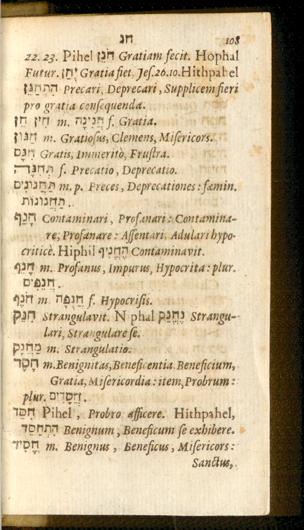 חנ 108
22. 23. Pihel חִנֵּן Gratiam fecit. Hophal
Futur. יֻחַן Gratia fiet. Jes. 26. 10. Hithpahel
הִתְחַנֵּן Precari, Deprecari, Supplicem fieri
pro gratia consequenda.
חֵין חֵן m. חֲנִינָה f. Gratia.
חַנּוּן m. Gratiosus, Clemens, Misericors.
חִנָּם Gratis, Immeritò, Frustra.
תְּחִנָּה f. Precatio, Deprecatio.
תַּחֲנוּנִים m. p. Preces, Deprecationes: fœmin.
תַּחֲנוּנוֹת.
חָנֵף Contaminari, Profanari: Contamina-
re, Profanare: Assentari, Adulari hypo-
criticè. Hiphil הֶחֱנִיף Contaminavit.
חָנֵף m. Profanus, Impurus, Hypocrita: plur.
חֲנֵפִים.
חֹנֶף m. חֲנֻפָּה f. Hypocrisis.
חָנַק Strangulavit. Niphal נֶחֱנַק Strangu-
lari, Strangulare se.
מַחֲנָק m. Strangulatio.
חֶסֶד m. Benignitas, Beneficentia, Beneficium,
Gratia, Misericordia: item, Probrum:
plur. חֲסָדִים.
חִסֵּד Pihel, Probro afficere. Hithpahel,
הִתְחַסֵּד Benignum, Beneficum se exhibere.
חָסִיד m. Benignus, Beneficus, Misericors:
Sanctus,